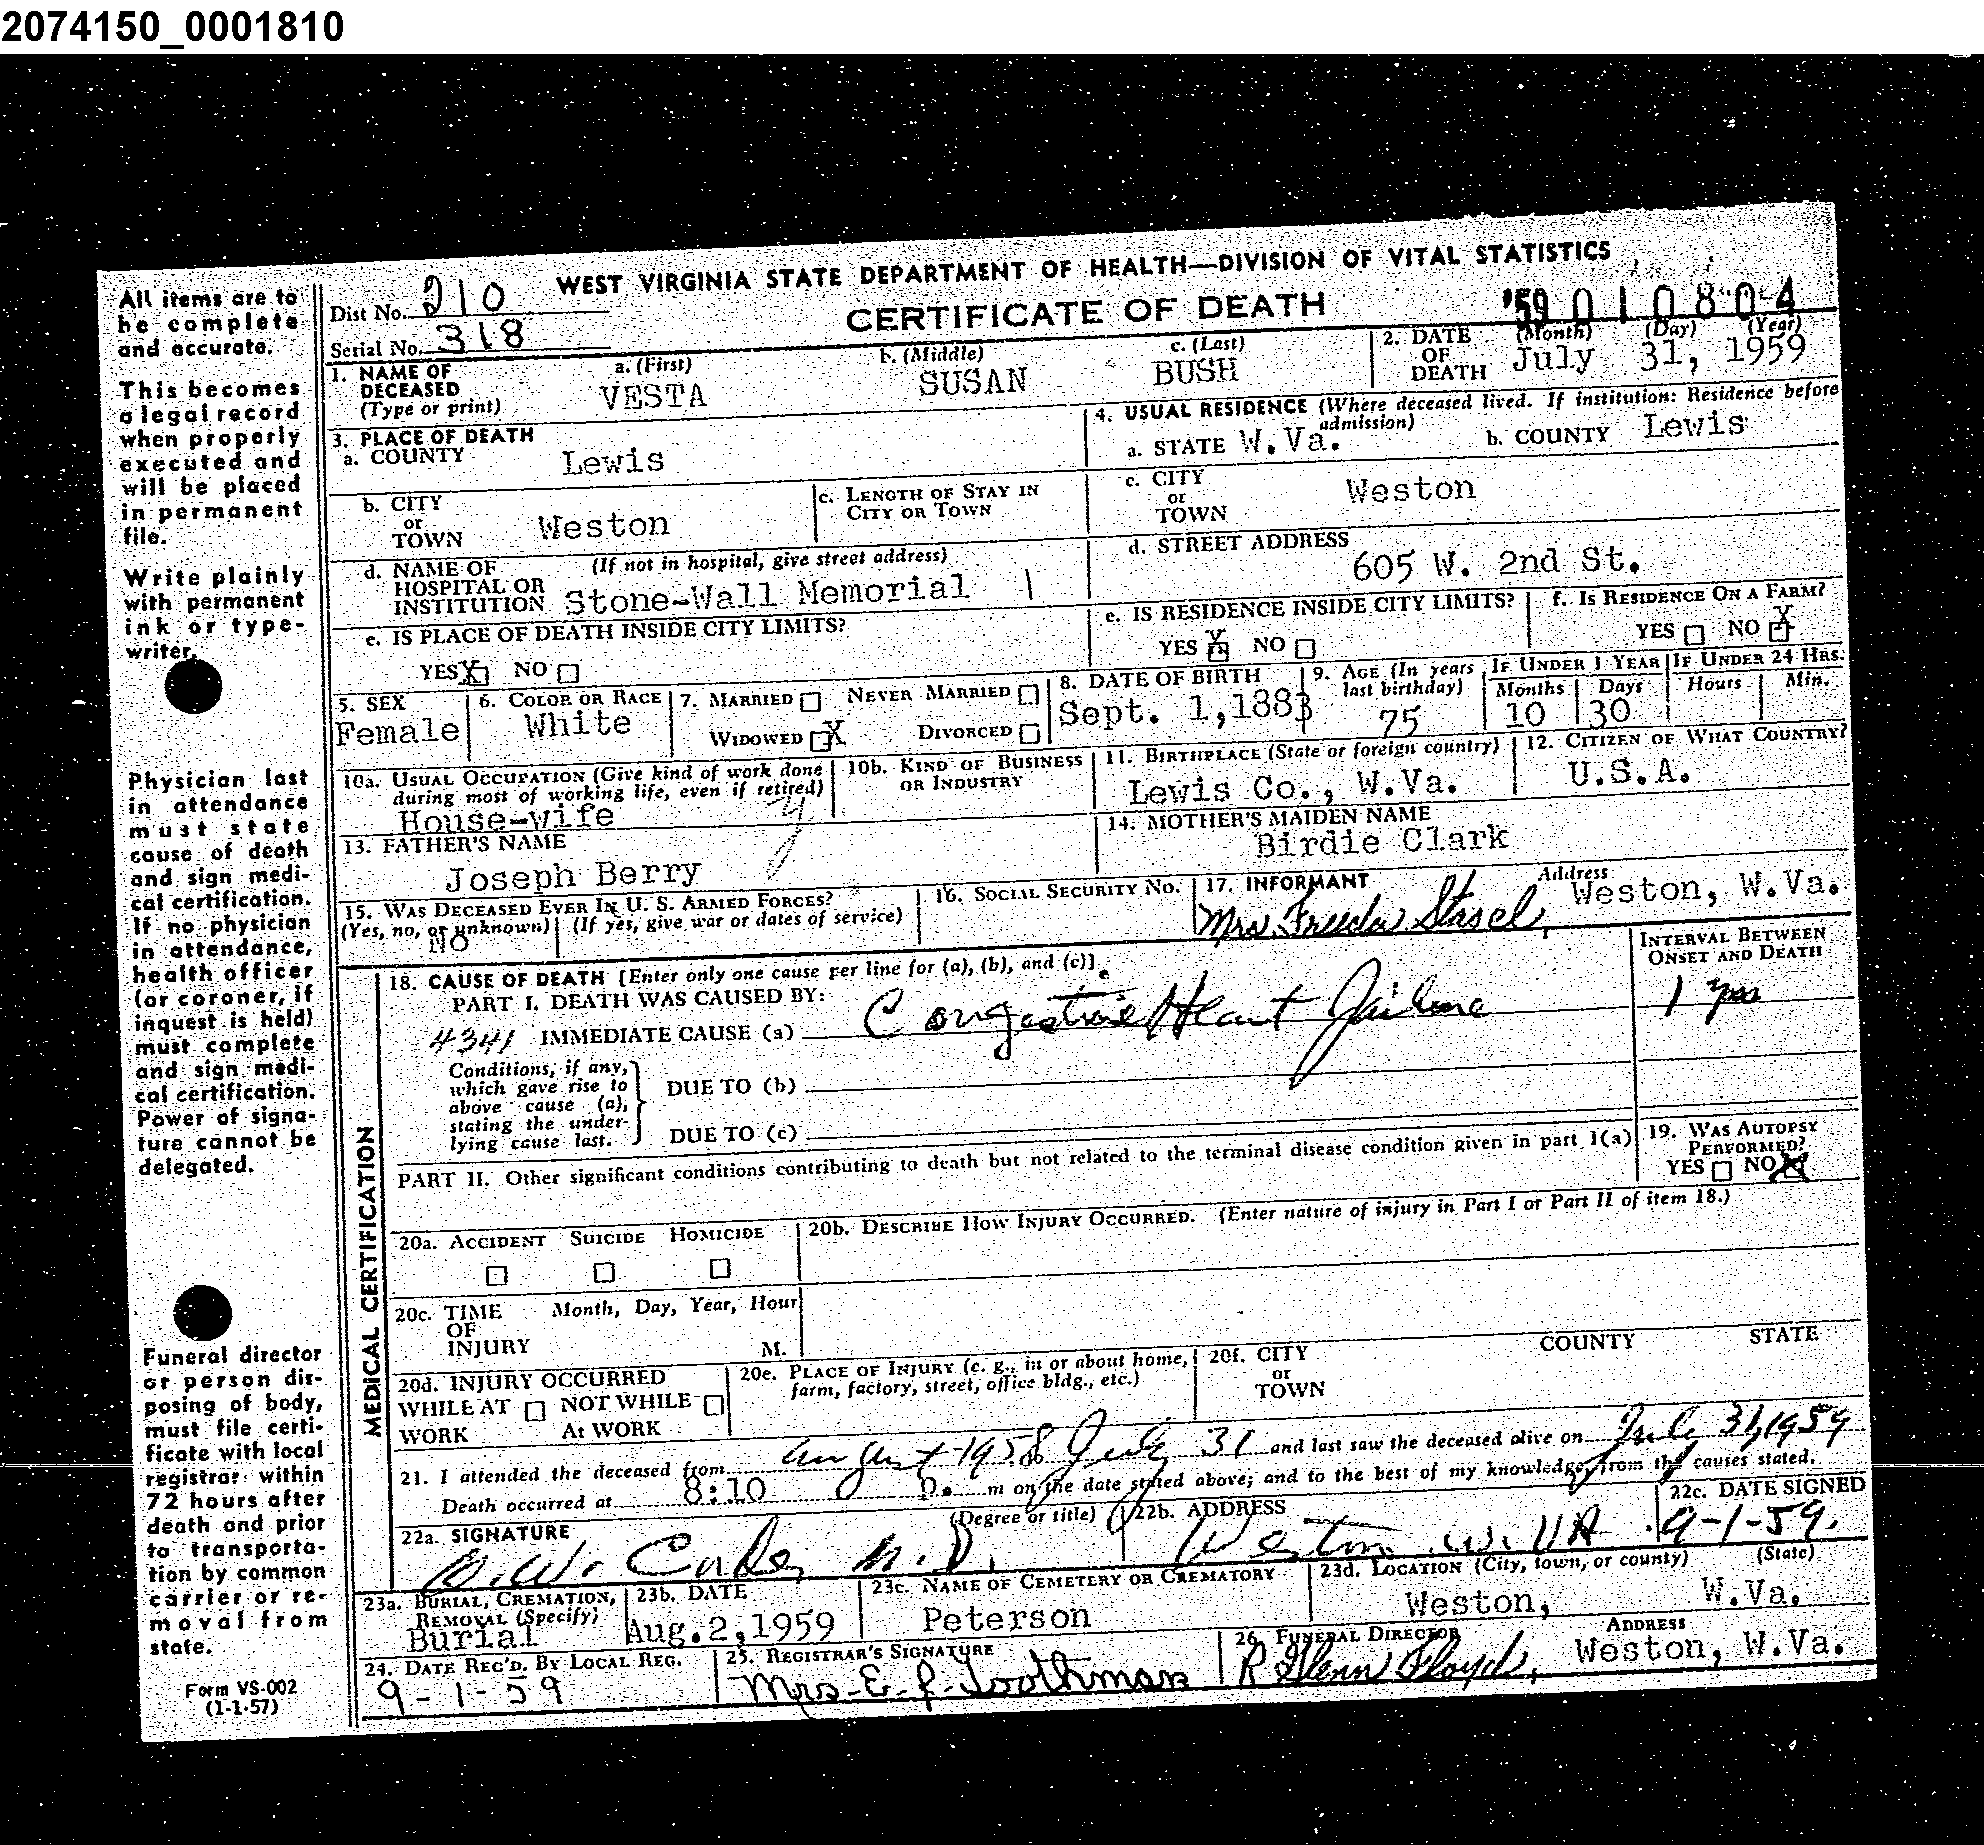 2074150_0001810
WEST VIRGINIA STATE DEPARTMENT OF HEALTH—DIVISION OF VITAL STATISTICS
CERTIFICATE OF DEATH
Dist No. 210
Serial No. 318
'59 010804
All items are to
be complete
and accurate.
This becomes
a legal record
when properly
executed and
will be placed
in permanent
file.
Write plainly
with permanent
ink or type-
writer.
Physician last
in attendance
must state
cause of death
and sign medi-
cal certification.
If no physician
in attendance,
health officer
(or coroner, if
inquest is held)
must complete
and sign medi-
cal certification.
Power of signa-
ture cannot be
delegated.
Funeral director
or person dis-
posing of body,
must file certi-
ficate with local
registrar within
72 hours after
death and prior
to transporta-
tion by common
carrier or re-
moval from
state.
Form VS-002
(1-1-57)
1. NAME OF DECEASED (Type or print)
a. (First) VESTA
b. (Middle) SUSAN
c. (Last) BUSH
2. DATE OF DEATH (Month) (Day) (Year)
July 31, 1959
3. PLACE OF DEATH
a. COUNTY Lewis
b. CITY or TOWN Weston
c. LENGTH OF STAY IN CITY OR TOWN
d. NAME OF HOSPITAL OR INSTITUTION (If not in hospital, give street address)
Stone-Wall Memorial
e. IS PLACE OF DEATH INSIDE CITY LIMITS?
YES X NO
4. USUAL RESIDENCE (Where deceased lived. If institution: Residence before admission)
a. STATE W.Va.
b. COUNTY Lewis
c. CITY or TOWN Weston
d. STREET ADDRESS
605 W. 2nd St.
e. IS RESIDENCE INSIDE CITY LIMITS?
YES X NO
f. IS RESIDENCE ON A FARM?
YES NO X
5. SEX
Female
6. COLOR OR RACE
White
7. MARRIED NEVER MARRIED
WIDOWED X DIVORCED
8. DATE OF BIRTH
Sept. 1,1883
9. AGE (In years last birthday)
75
IF UNDER 1 YEAR
Months 10 Days 30
IF UNDER 24 HRS.
Hours Min.
10a. USUAL OCCUPATION (Give kind of work done during most of working life, even if retired)
House-wife
10b. KIND OF BUSINESS OR INDUSTRY
11. BIRTHPLACE (State or foreign country)
Lewis Co., W.Va.
12. CITIZEN OF WHAT COUNTRY?
U.S.A.
13. FATHER'S NAME
Joseph Berry
14. MOTHER'S MAIDEN NAME
Birdie Clark
15. WAS DECEASED EVER IN U. S. ARMED FORCES?
(Yes, no, or unknown) (If yes, give war or dates of service)
No
16. SOCIAL SECURITY NO.
17. INFORMANT Address
Mrs. Freeda Stasel, Weston, W.Va.
MEDICAL CERTIFICATION
18. CAUSE OF DEATH [Enter only one cause per line for (a), (b), and (c)]
PART I. DEATH WAS CAUSED BY:
4341 IMMEDIATE CAUSE (a) Congestive Heart Failure
INTERVAL BETWEEN ONSET AND DEATH
1 yrs
Conditions, if any, which gave rise to above cause (a), stating the under-lying cause last.
DUE TO (b)
DUE TO (c)
PART II. Other significant conditions contributing to death but not related to the terminal disease condition given in part I(a)
19. WAS AUTOPSY PERFORMED?
YES NO X
20a. ACCIDENT SUICIDE HOMICIDE
20b. DESCRIBE HOW INJURY OCCURRED. (Enter nature of injury in Part I or Part II of item 18.)
20c. TIME OF INJURY Month, Day, Year, Hour
M.
20d. INJURY OCCURRED
WHILE AT WORK NOT WHILE At WORK
20e. PLACE OF INJURY (e. g., in or about home, farm, factory, street, office bldg., etc.)
20f. CITY or TOWN COUNTY STATE
21. I attended the deceased from August 1958 July 31 and last saw the deceased alive on July 31, 1959
Death occurred at 8:10 p. m on the date stated above; and to the best of my knowledge, from the causes stated.
22a. SIGNATURE (Degree or title)
M.D.
22b. ADDRESS
Weston W. VA
22c. DATE SIGNED
9-1-59.
23a. BURIAL, CREMATION, REMOVAL (Specify)
Burial
23b. DATE
Aug.2,1959
23c. NAME OF CEMETERY OR CREMATORY
Peterson
23d. LOCATION (City, town, or county) (State)
Weston, W.Va.
24. DATE REC'D. BY LOCAL REG.
9-1-59
25. REGISTRAR'S SIGNATURE
Mrs. E. J. Toothman
26. FUNERAL DIRECTOR ADDRESS
R Glenn Floyd, Weston, W.Va.